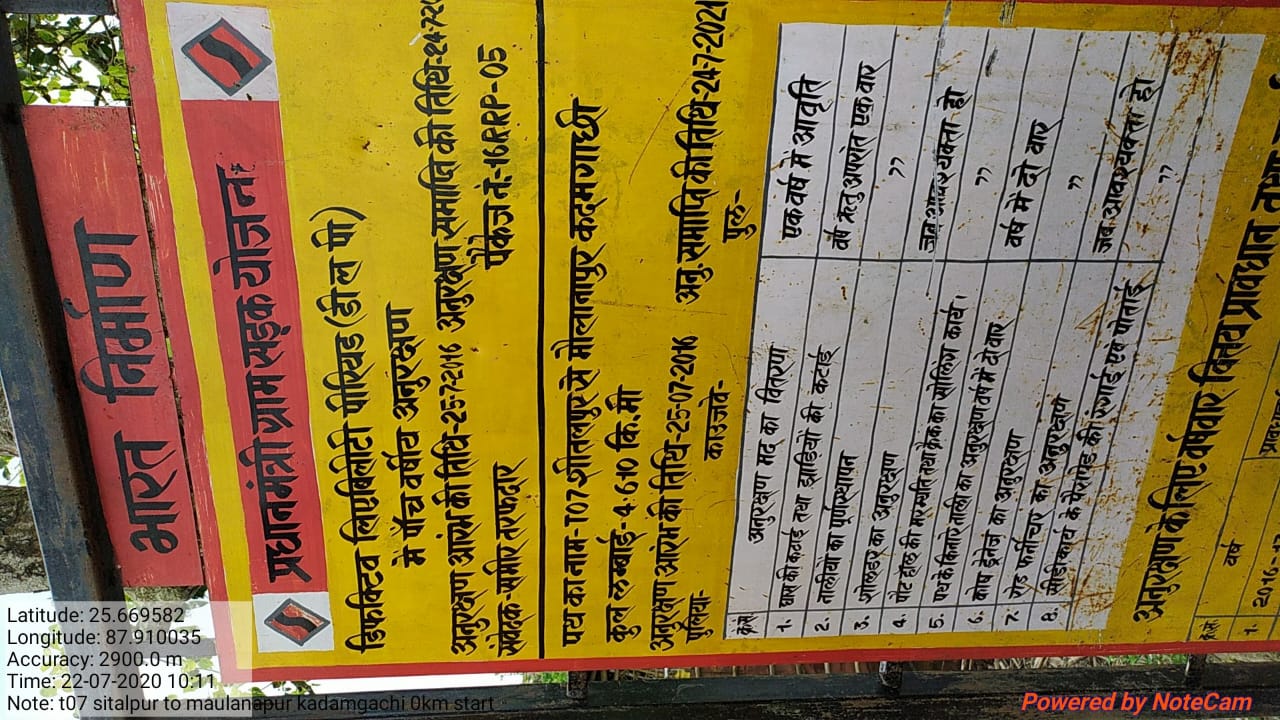 भारत निर्माण
प्रधानमंत्री ग्राम सड़क योजना
डिफेक्टिव लिएबिलिटी पीरियड (डी ल पी)
में पाँच वर्षीय अनुरक्षण
अनुरक्षण आरंभ की तिथि-25-7-2016 अनुरक्षण समाप्ति की तिथि-24-7-20
संवेदक-समीर तरफदार पैकेज नं.-16RRP-05
पथ का नाम-T07-शीतलपुर से मौलानापुर कदमगाछी
कुल लम्बाई-4.610 कि.मी
अनुरक्षण आरंभ की तिथि-25-07-2016 अनु. समाप्ति की तिथि-24-7-2021
पुलिया:- काउजवे:- पुल:-
क्र.सं. अनुरक्षण मद का वितरण एक वर्ष में आवृति
1. घास की कटाई तथा झाडियों की कटाई वर्ष ऋतु उपरांत एक बार
2. नालीयों का पूर्णस्थापन ,,
3. शोलडर का अनुरक्षण जब आवश्यक्ता हो
4. पोट होल की मरम्मति तथा क्रेक का सीलिंग कार्य। ,,
5. पथ के किनारे नाली का अनुरक्षण वर्ष में दो बार वर्ष में दो बार
6. क्रोष ड्रेनेज का अनुरक्षण ,,
7. रोड फर्नीचर का अनुरक्षण जब आवश्यक्ता हो
8. सीडी कार्य के पेरापेड की रंगाई एवं पोताई ,,
अनुरक्षण के लिए वर्षवार वित्तिय प्रावधान तथा
क्र.सं. वर्ष
1. 2016-17
Latitude: 25.669582
Longitude: 87.910035
Accuracy: 2900.0 m
Time: 22-07-2020 10:11
Note: t07 sitalpur to maulanapur kadamgachi 0km start
Powered by NoteCam